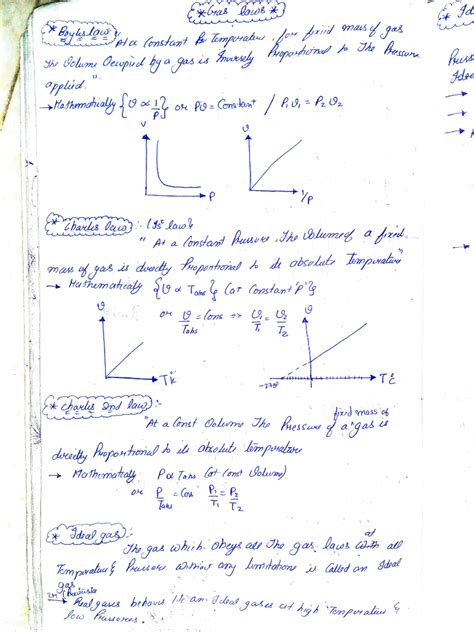 * Gas laws *
* Boyles law "At a Constant Temperature, for fixed mass of gas
the Volume Occupied by a gas is Inversely Proportional to the Pressure
applied."
→ Mathematically {V ∝ 1/P} or PV = Constant / P₁V₁ = P₂V₂
V
P
V
1/P
* Charles law :- (1st law)
"At a Constant Pressure, The Volume of a fixed
mass of gas is directly Proportional to its absolute Temperature"
→ Mathematically {V ∝ Tabs} (at Constant 'P')
or V/Tabs = Cons => V₁/T₁ = V₂/T₂
V
T K
V
-273°
T °C
* Charles 2nd law :-
"At a Const Volume The Pressure of fixed mass of a gas is
directly Proportional to its absolute temperature
→ Mathematically P ∝ Tabs (at Const Volume)
or P/Tabs = Cos P₁/T₁ = P₂/T₂
* Ideal gas :-
The gas which Obeys all The gas laws at all
Temperature & Pressure without any limitations is Called an Ideal
gas
→ Real gases behave like an Ideal gases at high Temperature &
low Pressures.